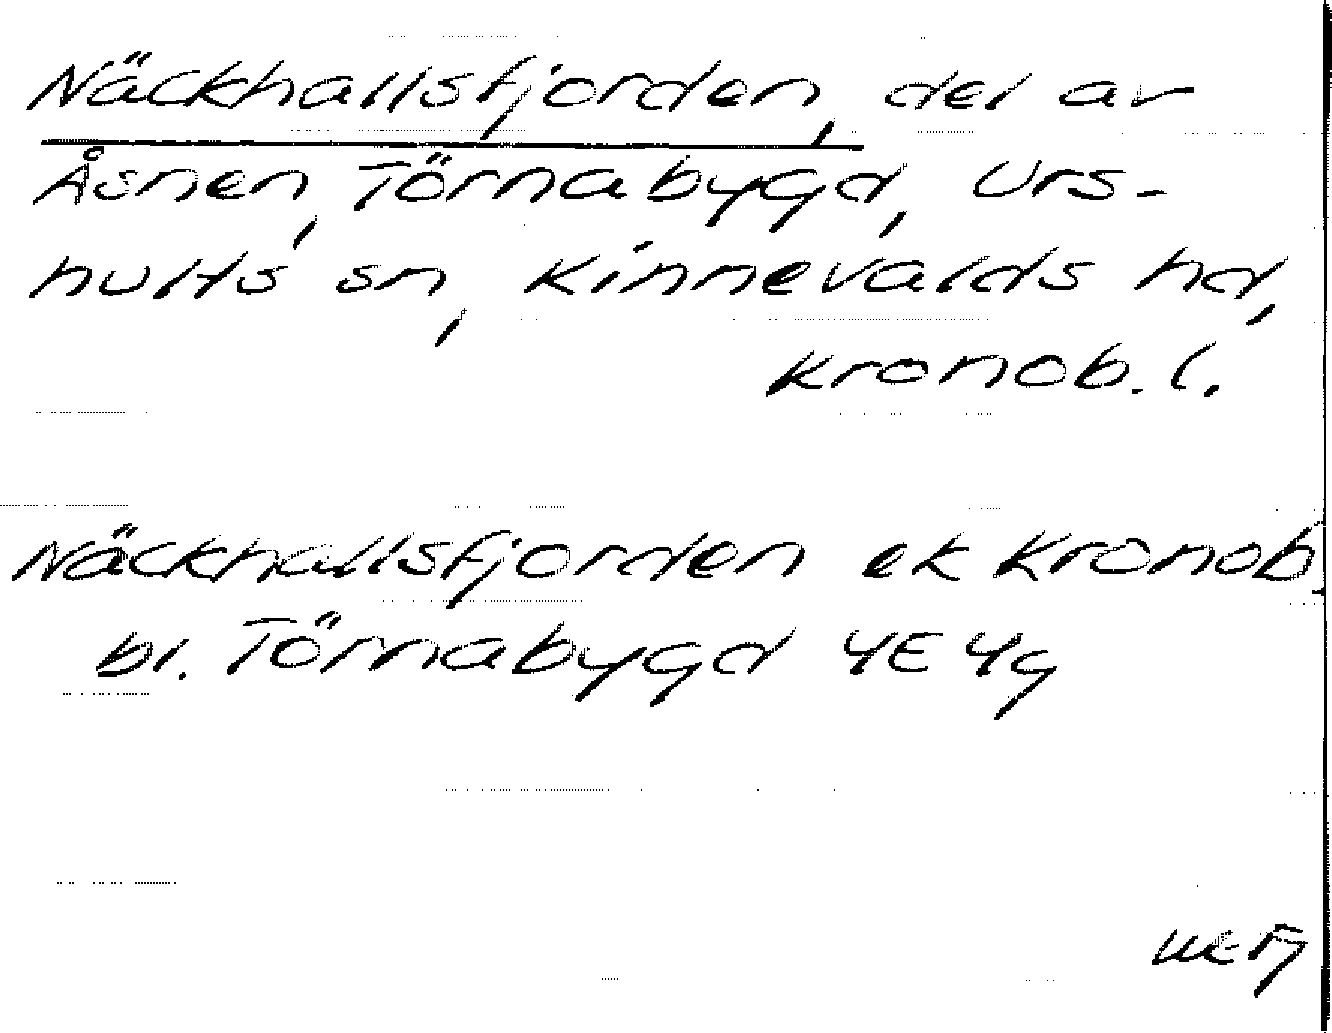 Näckhallsfjorden, del av
Åsnen, Törnabygd, Urs-
hults sn, Kinnevalds hd,
Kronob. l.
Näckhallsfjorden ek Kronob.
bl. Törnabygd 4E 4g